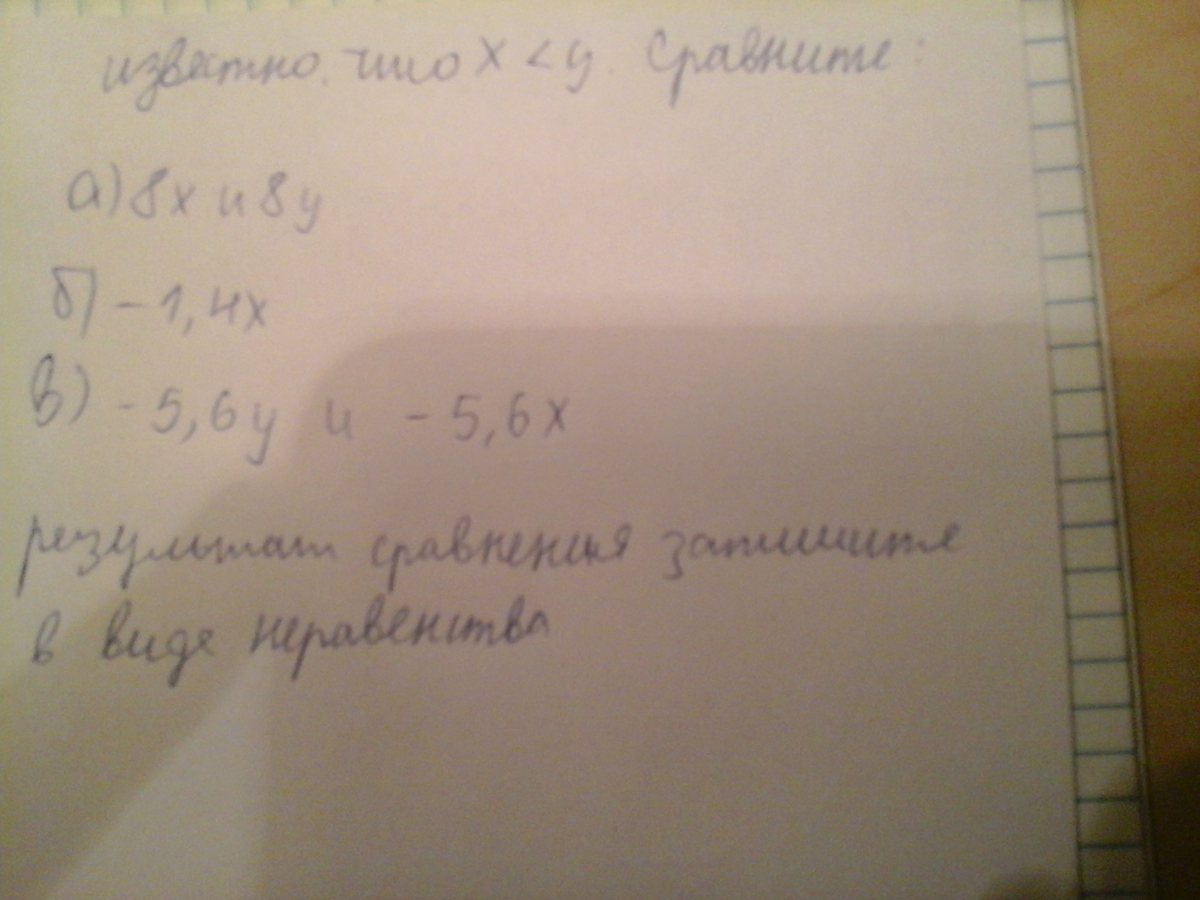 известно. что x < y. Сравните:
а) 8x и 8y
б) - 1,4x
в) - 5,6y и - 5,6x
результат сравнения запишите
в виде неравенства